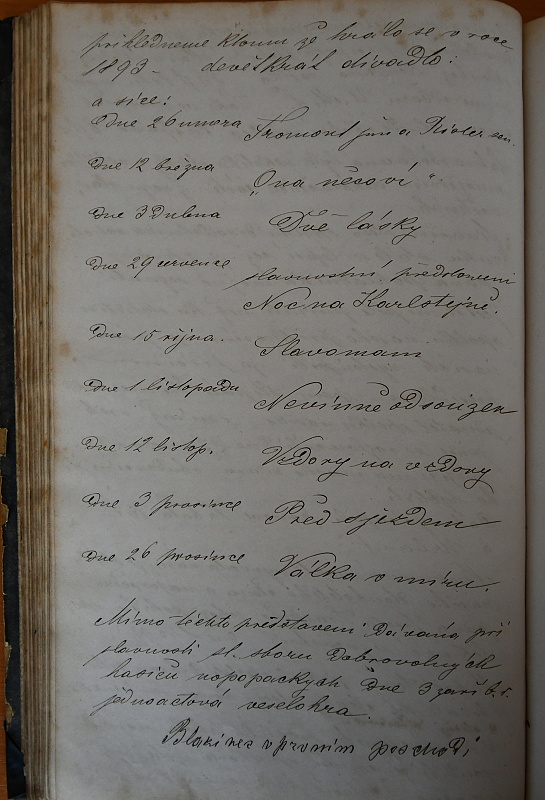 přihlédneme k tomu že hrálo se v roce
1893 - devětkrát divadlo:
a sice:
Dne 26 února Fromont jun a Risler sen.
Dne 12 března „Ona něco ví“
Dne 3 Dubna Dvě lásky
Dne 29 července slavnostní představení
Noc na Karlštejně.
Dne 15 října. Slavomani
Dne 1 listopadu Nevinně odsouzen
Dne 12 listop. Vzdory na vzdory
Dne 3 prosince Před sjezdem
Dne 26 prosince Válka v míru.
Mimo těchto představení Dávána při
slavnosti sl. sboru Dobrovolných
hasičů novopackých Dne 3 září t. r.
jednoactová veselohra.
Blázinec v prvním poschodí